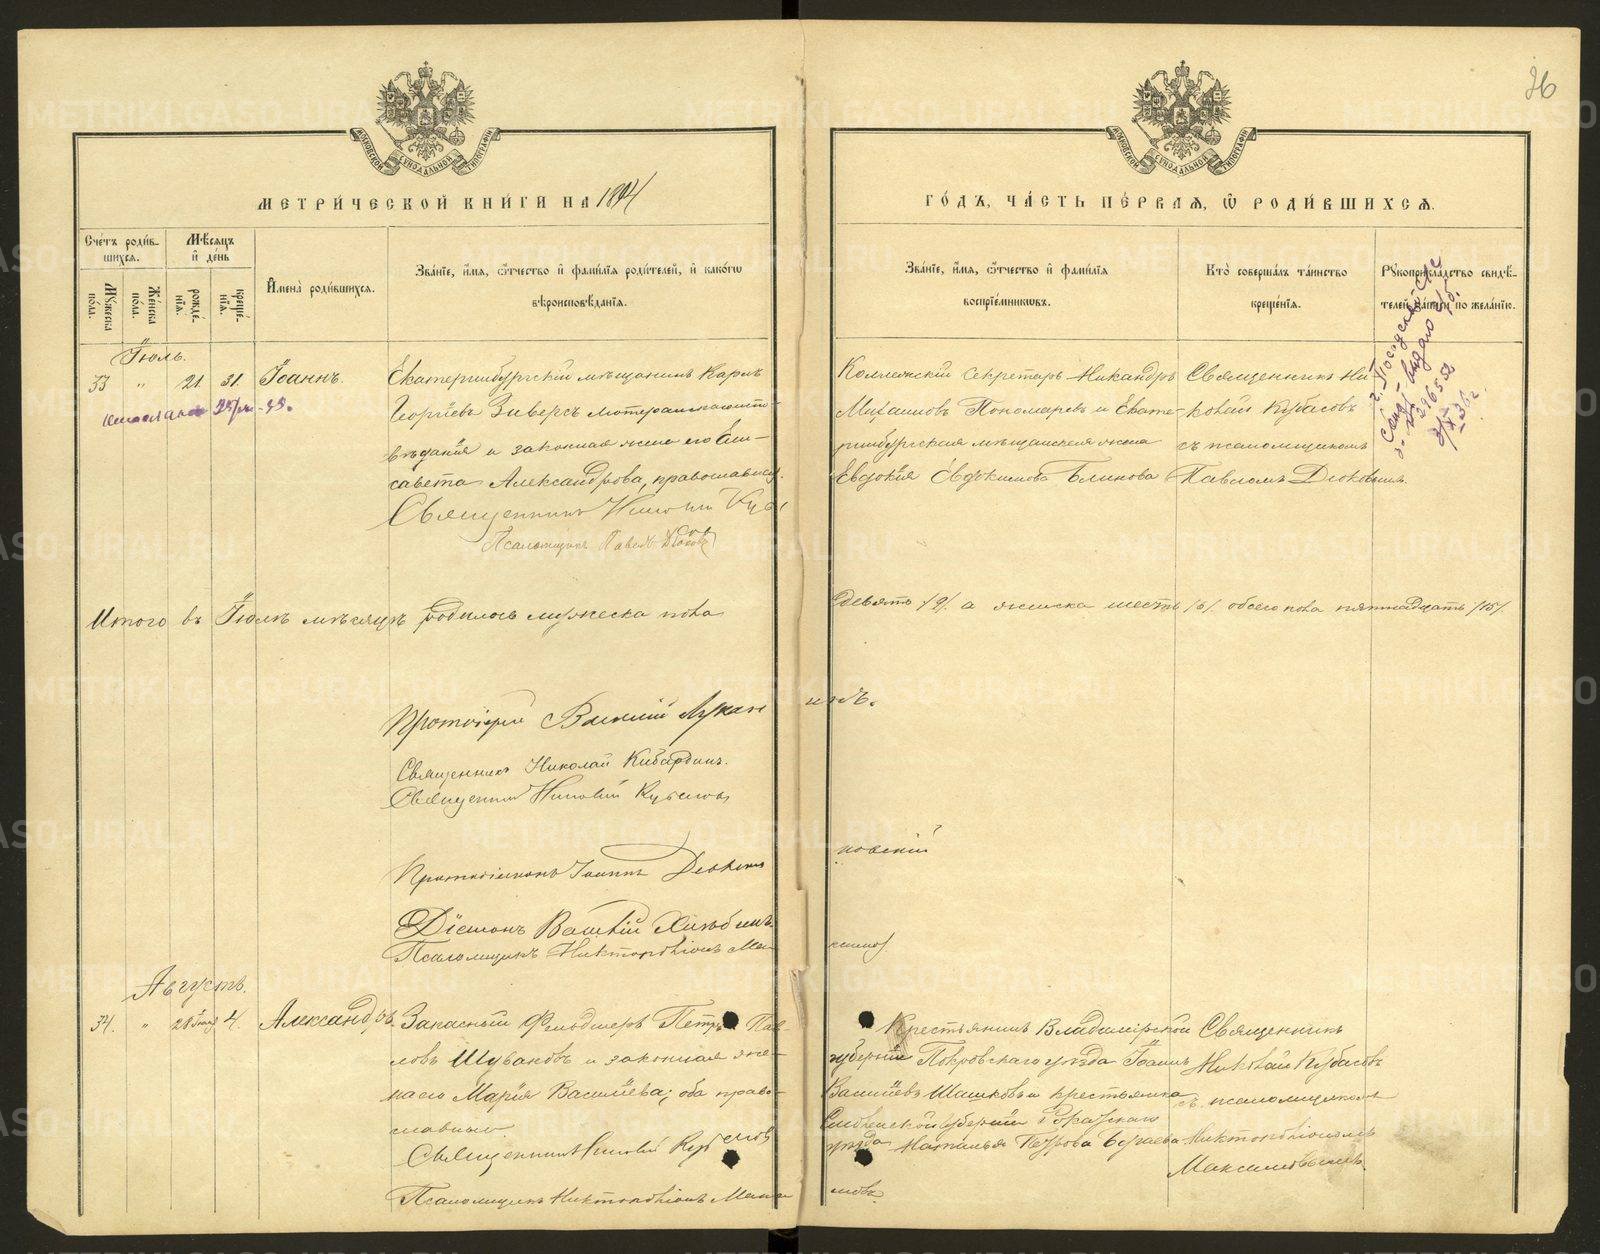 36
МОСКОВСКОЙ СѴНОДАЛЬНОЙ ТИПОГРАФІИ
МОСКОВСКОЙ СѴНОДАЛЬНОЙ ТИПОГРАФІИ
МЕТРИ́ЧЕСКОЙ КНИ́ГИ НА 1894
ГО́ДЪ, ЧА́СТЬ ПЕ́РВАЯ, Ѽ РОДИ́ВШИХСЯ.
Сче́тъ роди́вшихся.
Му́жеска по́ла.
Же́нска по́ла.
Мѣ́сяцъ и҆ де́нь
рожде́нїя.
креще́нїя.
И҆мена̀ роди́вшихся.
Зва́нїе, и҆́мя, ѻ҆́тчество и҆ фами́лїя роди́телей, и҆ како́гѡ
вѣроисповѣ́данїя.
Зва́нїе, и҆́мя, ѻ҆́тчество и҆ фами́лїя
воспрїе́мникѡвъ.
Кто̀ соверша́лъ та́инство
креще́нїя.
Рꙋкоприкла́дство свидѣ́телей за́писи по жела́нїю.
Іюль.
33 " 21. 31. Іоаннъ.
Екатеринбургскій мѣщанинъ Карлъ
Георгіевъ Зиверсъ лютеранскаго испо-
вѣданія и законная жена его Ели-
савета Александрова, православная.
Священникъ Николай Куба
Псаломщикъ Павелъ Дюковъ
Коллежскій секретарь Никандръ
Михаиловъ Пономаревъ и Екате-
ринбургская мѣщанская жена
Евдокія Евдокимова Блинова
Священникъ Ни-
колай Кубасовъ
съ псаломщикомъ
Павломъ Дюковымъ
Итого въ Іюлѣ мѣсяцѣ родилось мужеска пола
девять /9/. а женска шесть /6/. обоего пола пятнадцать /15/.
Протоіерей Василій Лукан
инъ.
Священникъ Николай Кибардинъ.
Священникъ Николай Кубасовъ
Протодіаконъ Іоаннъ Дюков
новскій
Діаконъ Василій Хлѣбинъ
Псаломщикъ Никтополіонъ Мак
симов
Августъ.
34. " 28 Іюля 4. Александръ.
Запасный Фельдшеръ Петръ Пав-
ловъ Шувановъ и законная же-
на его Марія Васильева; оба право-
славные.
Священникъ Николай Кубасовъ
Псаломщикъ Никтополіонъ Макси
мовъ
Крестьянинъ Владимірской
губерніи Покровскаго уѣзда Іоаннъ
Васильевъ Шашковъ и крестьянка
губерніи
уѣзда Наталья Петрова
Священникъ
Николай Кубасовъ
съ псаломщикомъ
Никтополіономъ
METRIKI.GASO-URAL.RU